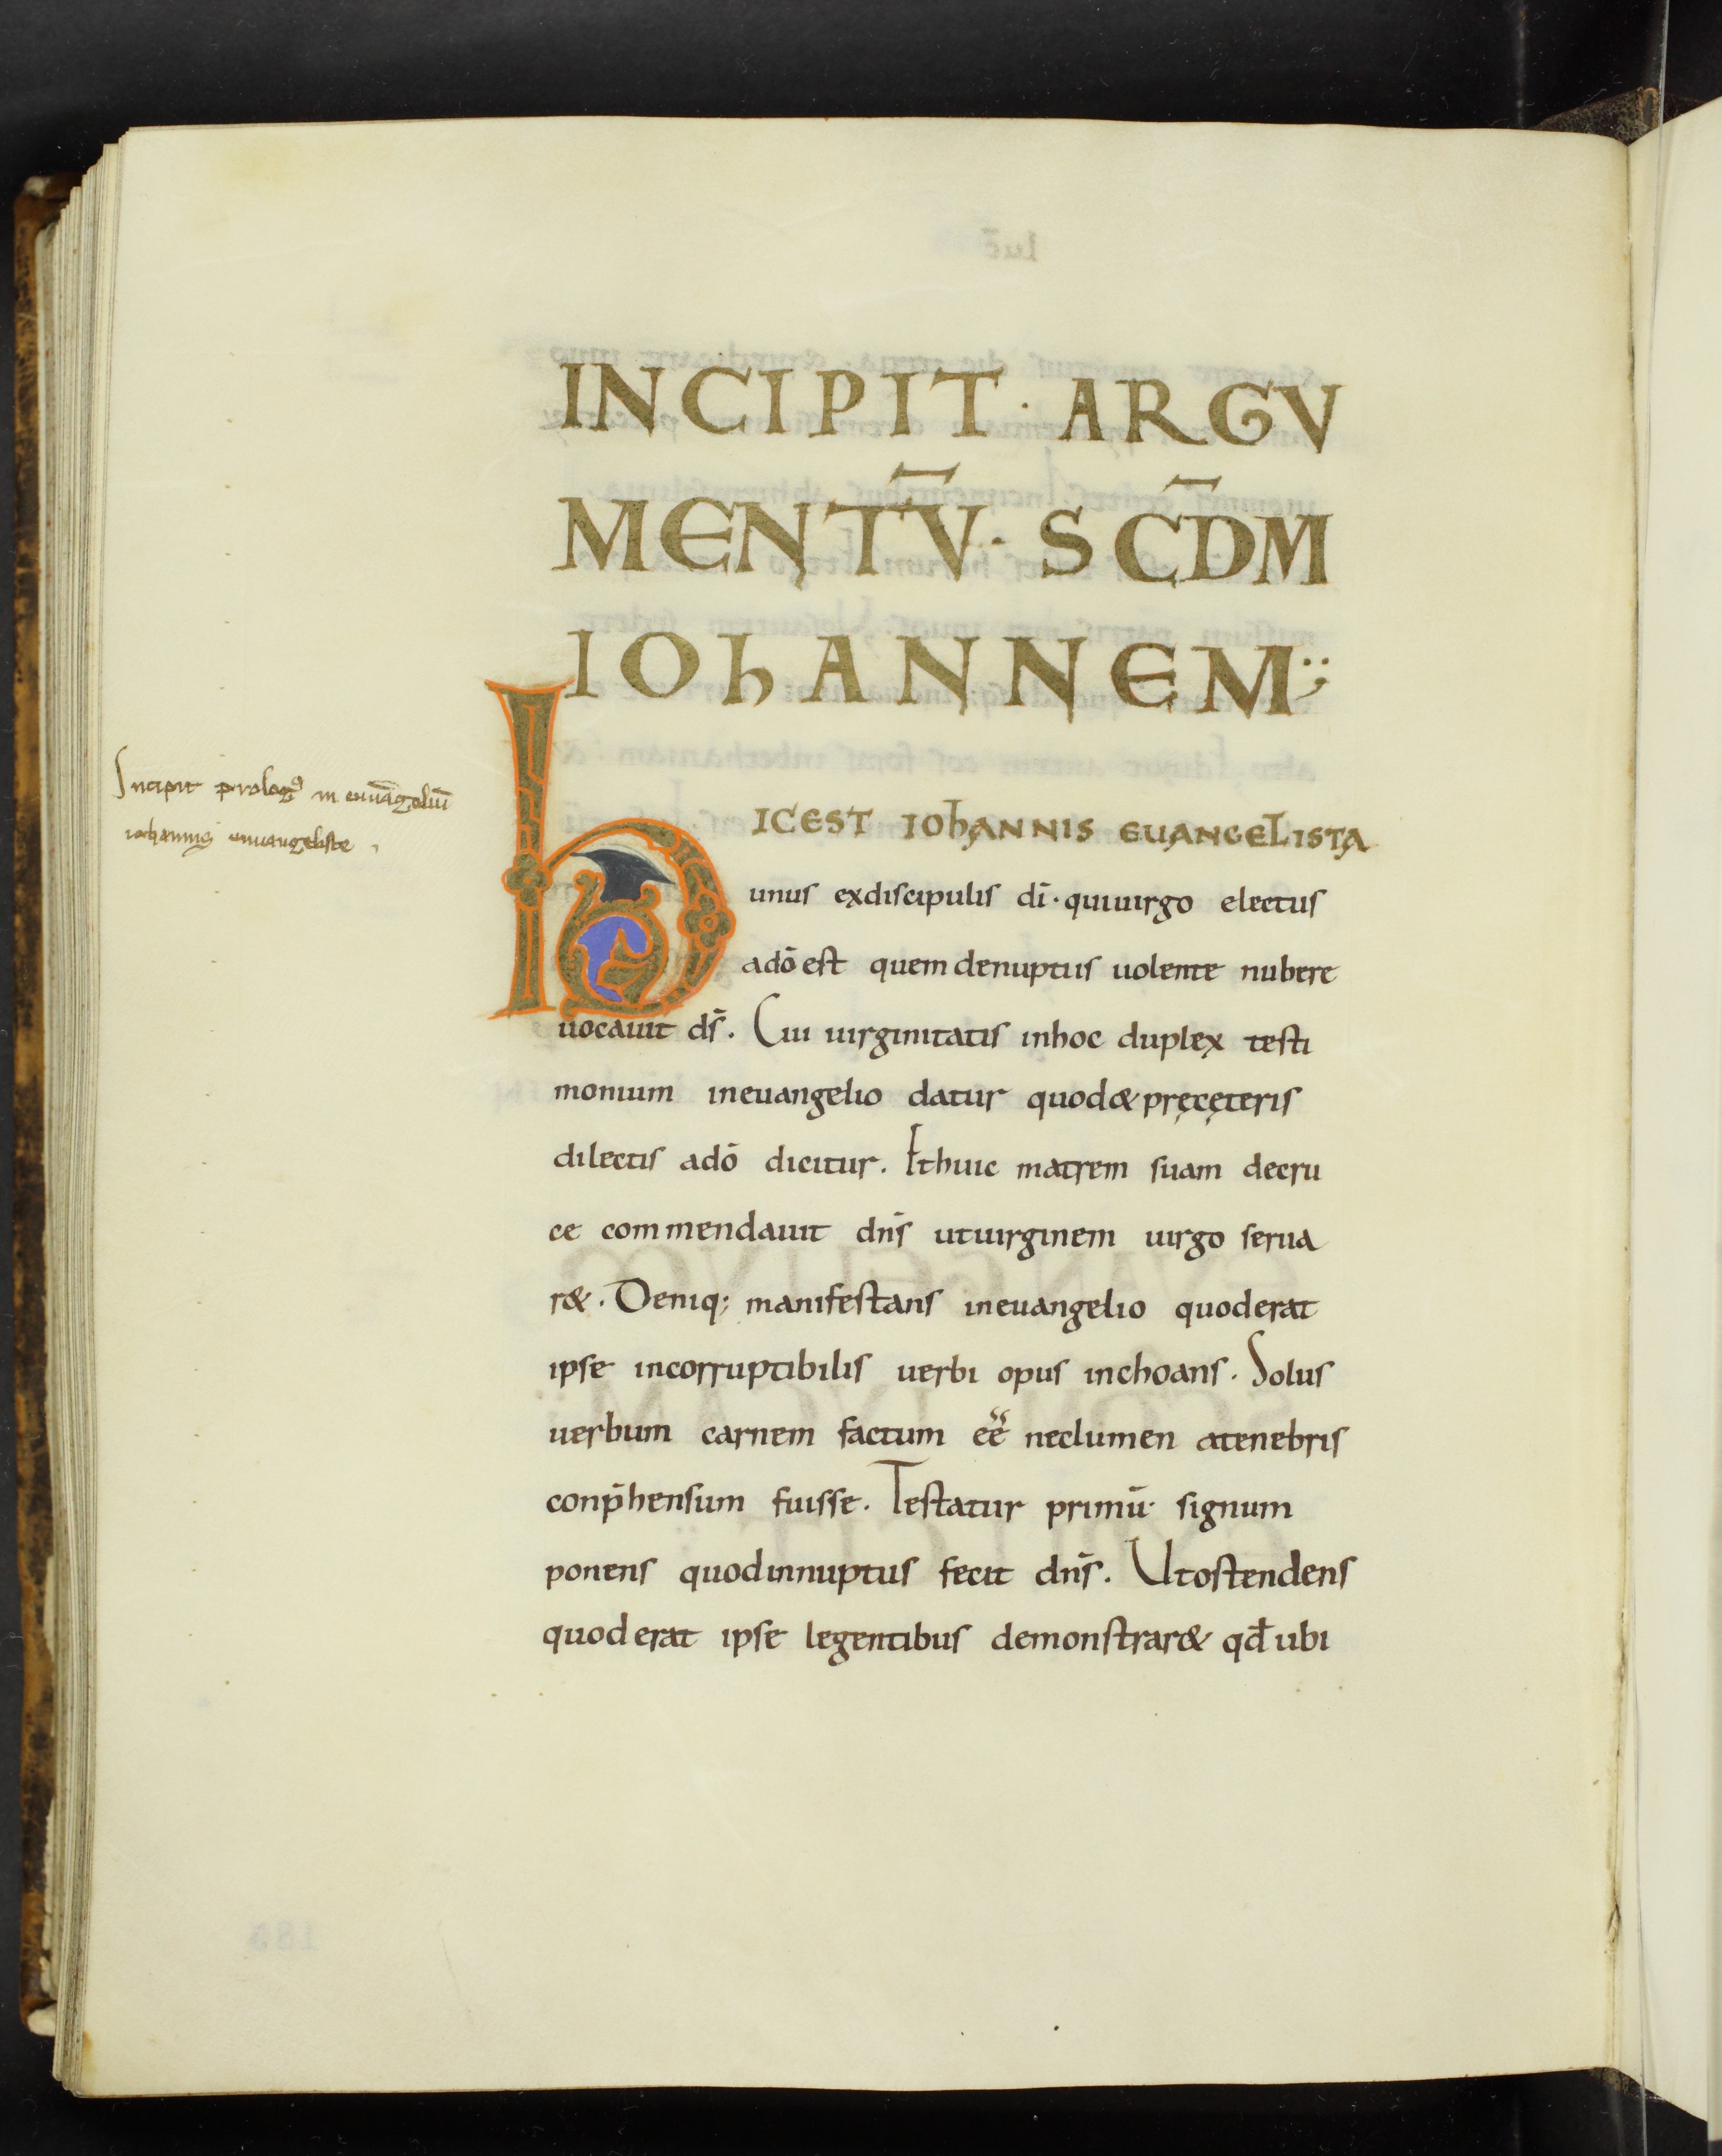 INCIPIT · ARGV
MENTV̅ · SCD̅M
IOhANNEM
Incipit prologꝰ in euuāgeliū
iohannis euuangeliste .
hICEST IOhANNIS EUANGELISTA
unus exdiscipulis dī · quiuirgo electus
adō est quem denuptiis uolente nubere
uocauit dſ̄. Cui uirginitatis inhoc duplex testi
monium ineuangelio datur quod&pręcęteris
dilectis adō dicitur. Ethuic matrem suam decru
ce commendauit dnſ̄ utuirginem uirgo serua
r&. Deniq; manifestans ineuangelio quoderat
ipse incorruptibilis uerbi opus inchoans. Solus
uerbum carnem factum eē neclumen atenebris
conp̄hensum fuisse. Testatur primū signum
ponens quodinnuptiis fecit dnſ̄. Utostendens
quod erat ipse legentibus demonstrar& qđ ubi